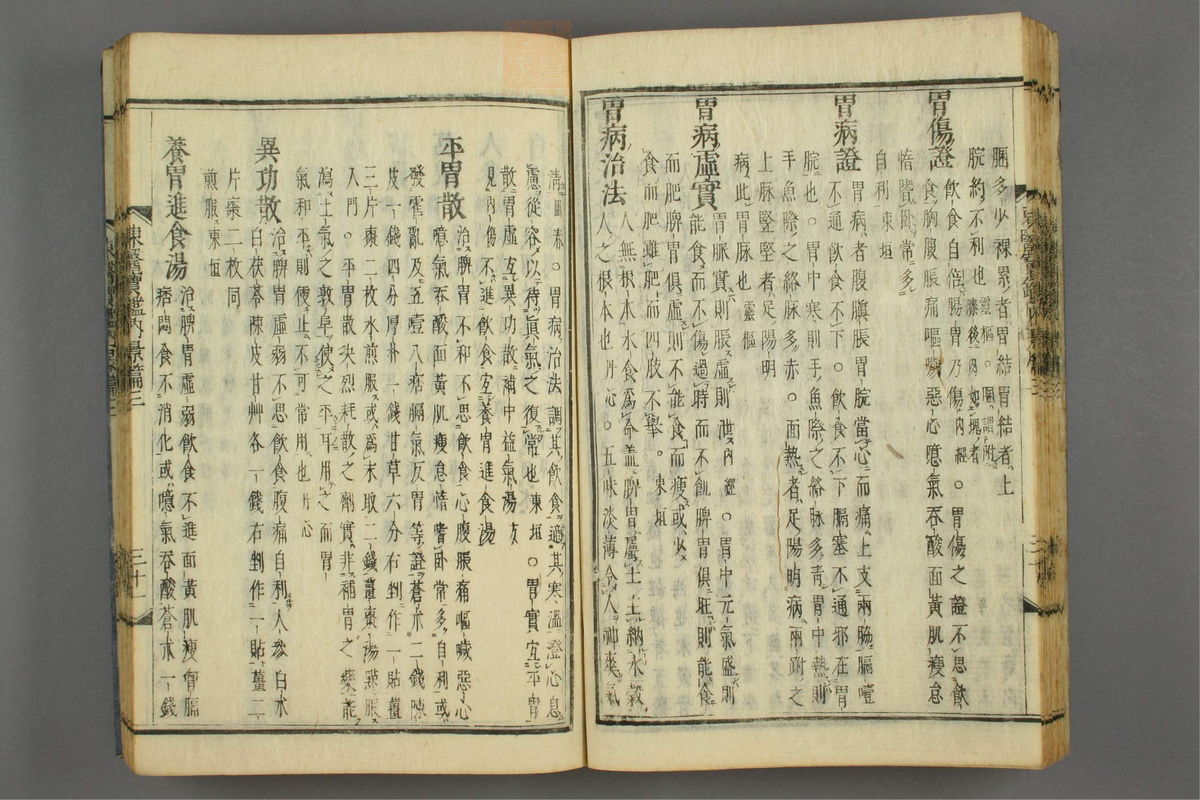 䐃多少褁累者胃結胃結者上
脘約不利也靈樞。䐃謂附
膝後肉如塊者
胃傷證
飮食自倍腸胃乃傷內經。胃傷之證不思飮
食胸腹脹痛嘔噦惡心噫氣呑酸面黃肌瘦怠
惰嗜臥常多
自利東垣
胃病證
胃病者腹䐜脹胃脘當心而痛上支兩脇膈噎
不通飮食不下。飮食不下膈塞不通邪在胃
脘也。胃中寒則手魚際之絡脉多靑胃中熱則
手魚際之絡脉多赤。面熱者足陽明病兩跗之
上脉竪堅者足陽明
病此胃脉也靈樞
胃病虛實
胃脈實則脹虛則泄內經。胃中元氣盛則
能食而不傷過時而不飢脾胃俱旺則能食
而肥脾胃俱虛則不能食而瘦或少
食而肥雖肥而四肢不擧。東垣
胃病治法
人無根本水食爲命盖脾胃屬土主納水穀
人之根本也丹心。五味淡薄令人神爽氣
淸
。胃病治法調其飮食適其寒溫澄心息
慮從容以待眞氣之復常也東垣。胃實宜平胃
散胃虛宜異功散補中益氣湯
見內傷不進飮食宜養胃進食湯
平胃散
治脾胃不和不思飮食心腹脹痛嘔噦惡心
噫氣呑酸面黃肌瘦怠惰嗜臥常多自利或
發霍亂及五噎八痞膈氣反胃等證蒼朮二錢陳
皮一錢四分厚朴一錢甘草六分右剉作一貼薑
三片棗二枚水煎服或爲末取二錢薑棗湯點服
入門。平胃散決烈耗散之劑實非補胃之藥能
瀉土氣之敦阜使之平耳用之而胃
氣和平則便止不可常用也丹心
異功散
治脾胃虛弱不思飮食腹痛自利人參白朮
白茯苓陳皮甘艸各一錢右剉作一貼薑三
片棗二枚同
煎服東垣
養胃進食湯
治脾胃虛弱飮食不進面黃肌瘦胷膈
痞悶食不消化或噫氣呑酸蒼朮一錢
東醫寶鑑內景篇三
三十一